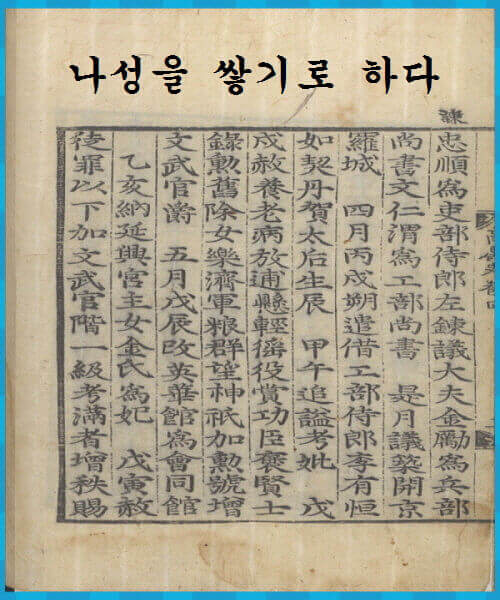 나성을 쌓기로 하다
諫
忠順爲吏部侍郎左鍊議大夫金勵爲兵部
尚書文仁渭爲工部尚書 是月議築開京
羅城 四月丙戌朔遣借工部侍郎李有恒
如契丹賀太后生辰 甲午追謚考妣 戊
戌赦養老病放逋懸輕徭役賞功臣褒賢士
錄勲舊除女樂濟軍粮群望神祇加勲號增
文武官爵 五月戊辰改英華館爲會同館
乙亥納延興宮主女金氏爲妃 戊寅赦
徒罪以下加文武官階一級考滿者增秩賜